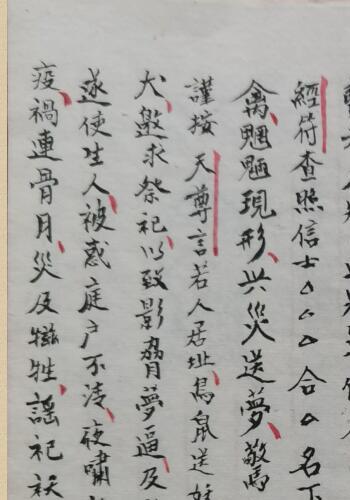 經符查照信士△△合△名下
禽魍魎現形兴災送夢驚
謹按天尊言若人居址鳥鼠送妖
犬邀求祭祀以致影脅夢逼及
遂使生人被惑庭户不清夜嘯
疫禍連骨月災及犠牲謡祀妖